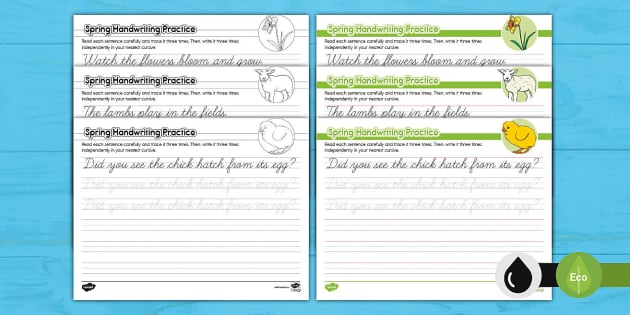 Spring Handwriting Practice
Read each sentence carefully and trace it three times. Then, write it three times
independently in your neatest cursive.
Watch the flowers bloom and grow.
Spring Handwriting Practice
Read each sentence carefully and trace it three times. Then, write it three times
independently in your neatest cursive.
The lambs play in the fields.
Spring Handwriting Practice
Read each sentence carefully and trace it three times. Then, write it three times
independently in your neatest cursive.
Did you see the chick hatch from its egg?
Did you see the chick hatch from its egg?
Did you see the chick hatch from its egg?
Spring Handwriting Practice
Read each sentence carefully and trace it three times. Then, write it three times
independently in your neatest cursive.
Watch the flowers bloom and grow.
Spring Handwriting Practice
Read each sentence carefully and trace it three times. Then, write it three times
independently in your neatest cursive.
The lambs play in the fields.
Spring Handwriting Practice
Read each sentence carefully and trace it three times. Then, write it three times
independently in your neatest cursive.
Did you see the chick hatch from its egg?
Did you see the chick hatch from its egg?
Did you see the chick hatch from its egg?
Eco